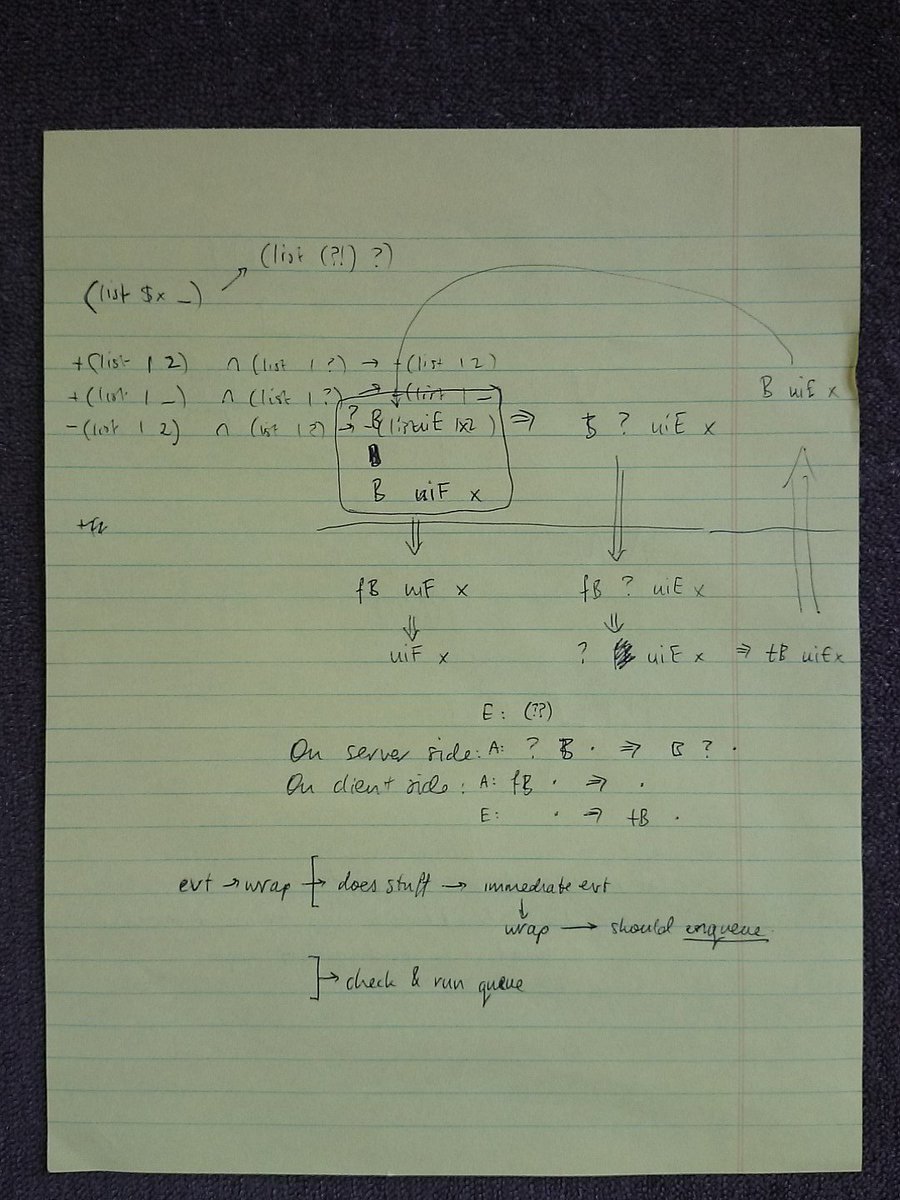 (list (?!) ?)
(list $x _)
+(list 1 2) ∩ (list 1 ?) → +(list 1 2)
+(list 1 _) ∩ (list 1 ?) → +(list 1 _
B uiE x
-(list 1 2) ∩ (list 1 ?) →
? B uiE x ⇒ B ? uiE x
B uiF x
fB uiF x fB ? uiE x
uiF x ? uiE x ⇒ tB uiE x
E: (??)
On server side: A: ? B · ⇒ B ? ·
On client side: A: fB · ⇒ ·
E: · ⇒ tB ·
evt → wrap → does stuff → immediate evt
wrap → should enqueue
→ check & run queue